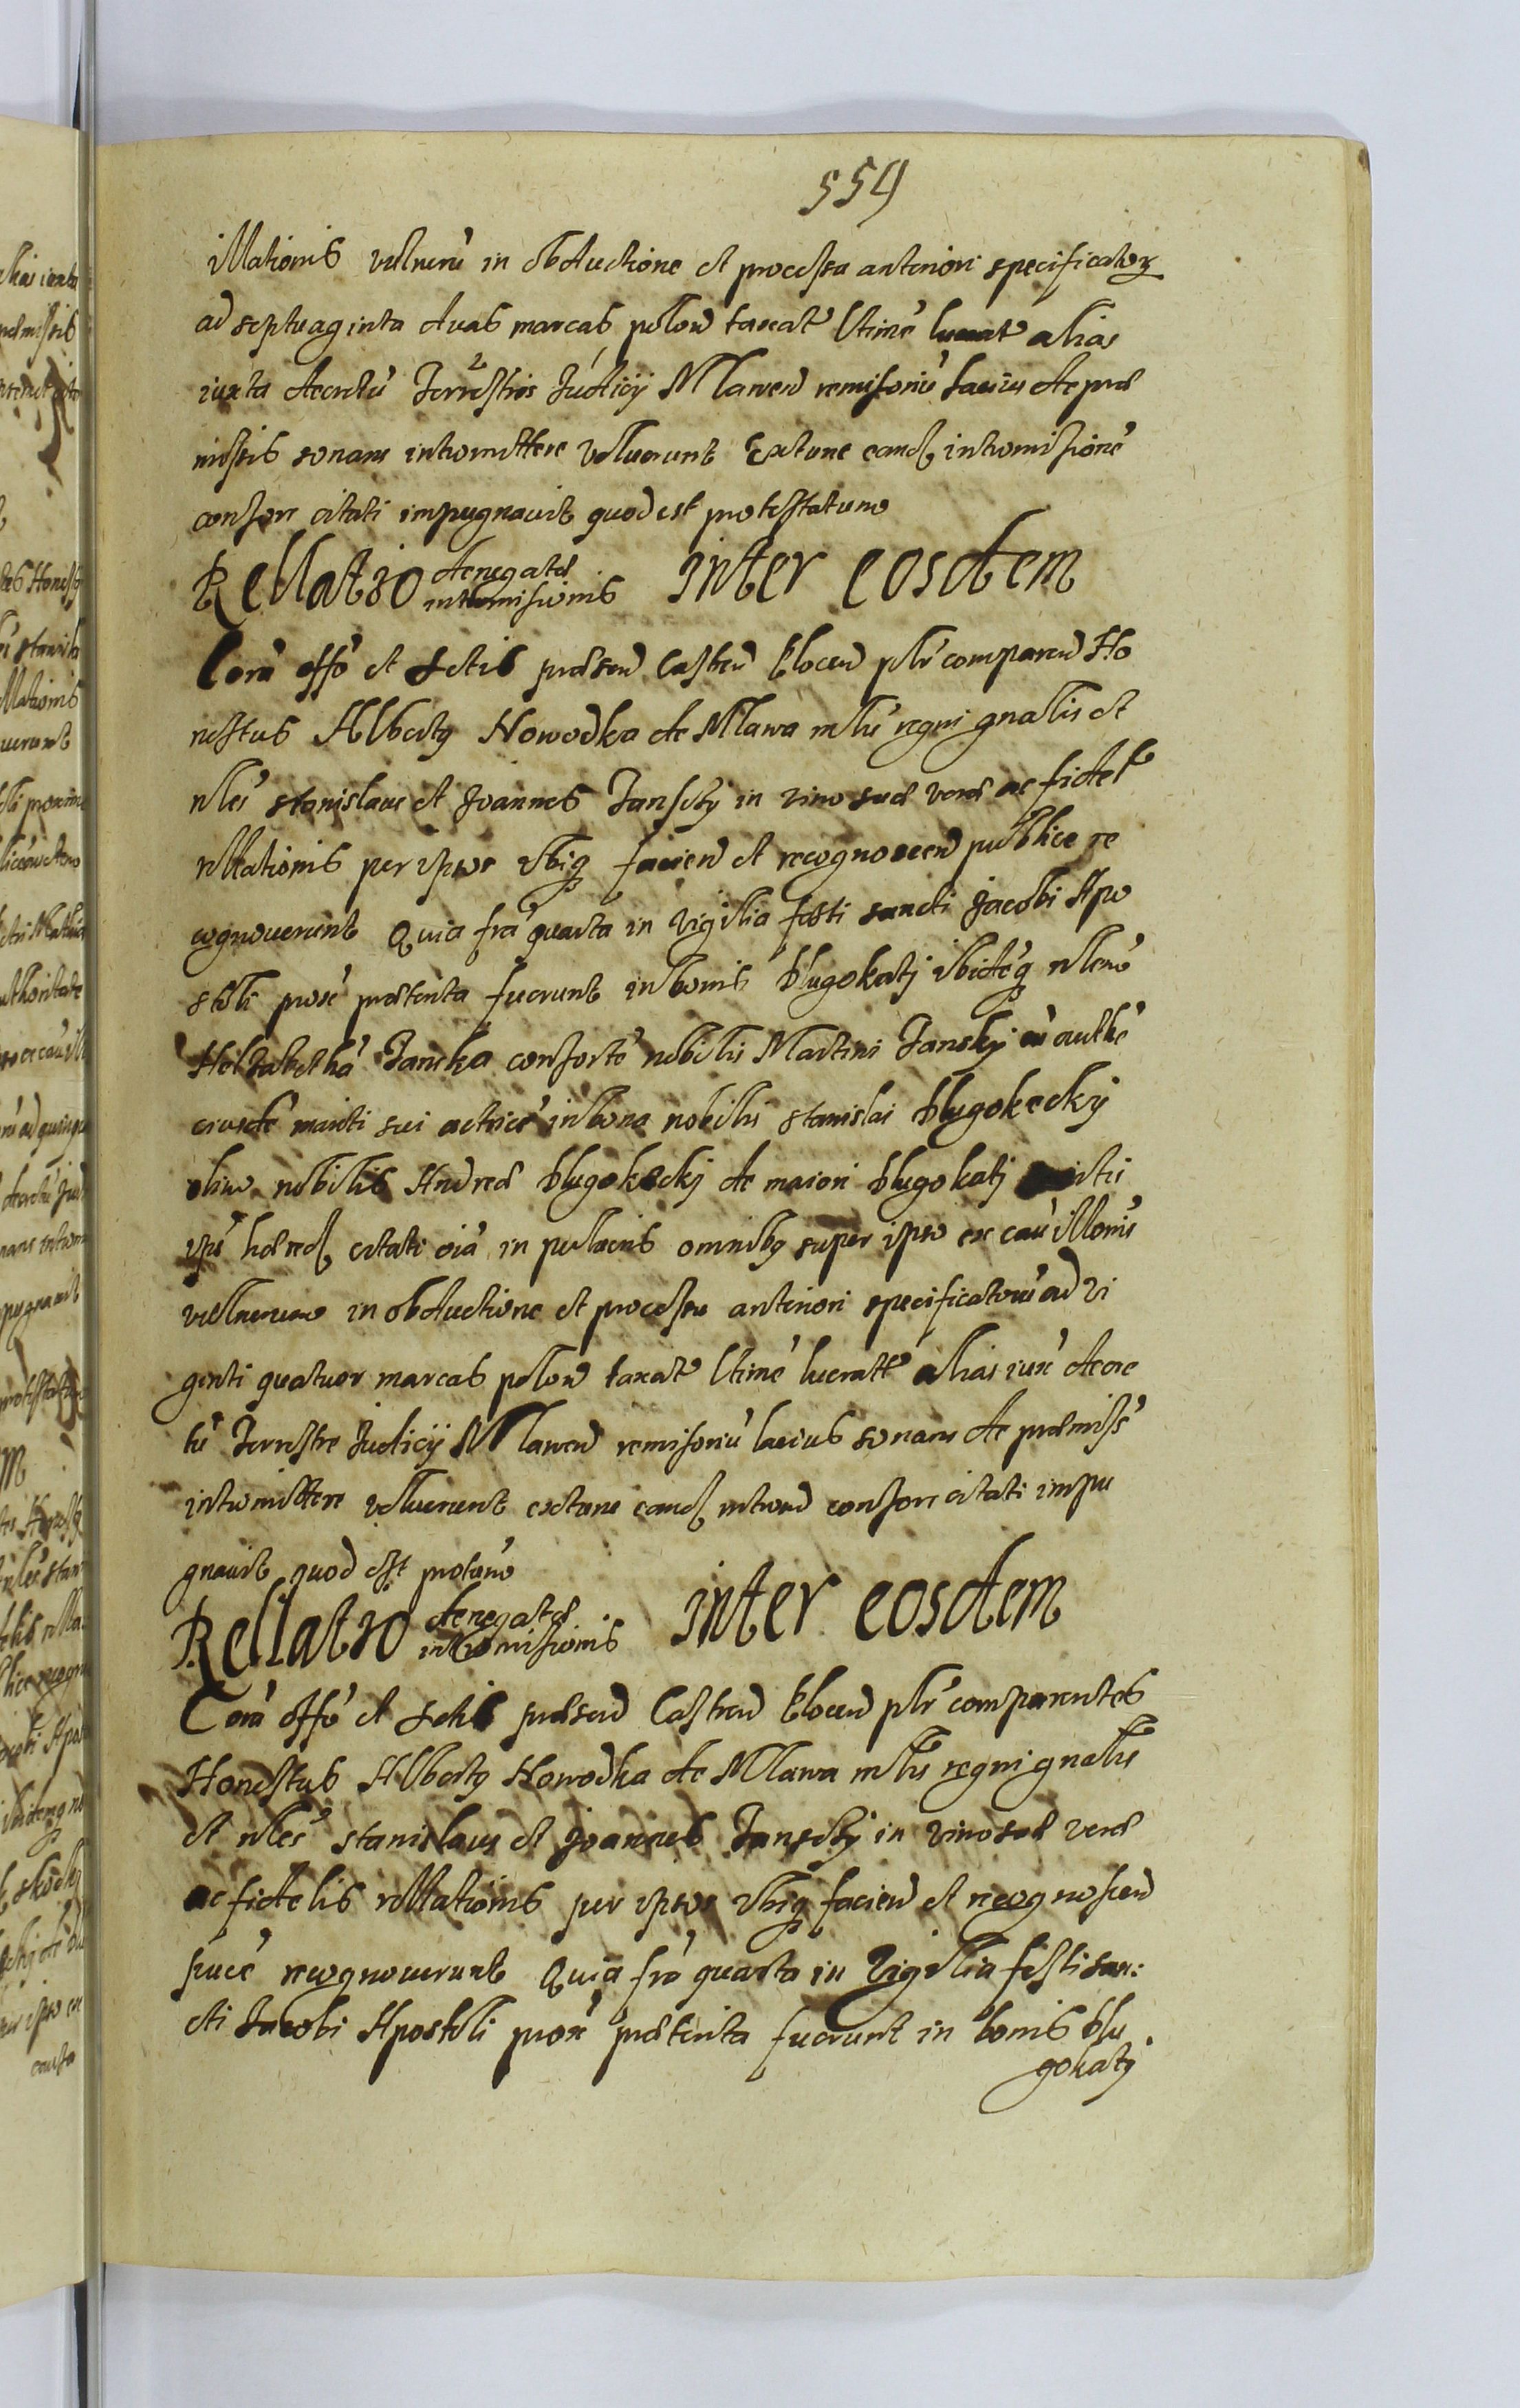 559
illationis vulnerũ in obductione et processu anteriori specificator
ad septuaginta duas marcas polon taxat ltime lucrat alias
iuxta decretũ Terrestris Judicÿ Mlawen remissoriũ latius de præ
missis sonans intromittere voluerunt Extunc eand intromissionẽ
consors citati impugnauit quod est protestatum
Rellatio denegatæ intromissionis inter eosdem
Corã offõ et Actis præsen Castren Plocen plr comparen Ho
nestus Albertq Nowodka de Mlawa mlis regni gnalis et
nles stanislaus et Joannes Janscky in vim suæ veræ ac fidel
rllationis per ipsos vbiq facien et recognoscen publice re
cognouerunt Quia fra quarta in vigilia festi sancti Jacobi Apo
stoli prox præterita fuerunt in bonis Dlugokaty ibidéq nlem
Helzabethã Janska consortẽ nobilis Martini Jansky cũ authẽ
eiusdẽ mariti sui actricẽ in bona nobilis stanislai Dlugokecky
olim nobilis Andreæ Dlugokecky de maiori Dlugokaty
ipsi hæred citati oiã in pulneris omnibq super ipso ex cau illonis
vulnerum in obductione et processu anteriori specificatorũ ad vi
ginti quatuor marcas polon taxat ltime lucratt alias iux decre
tũ Terrestre Judicÿ Mlawen remissoriũ lacius sonans de præmiss
intromittere voluerunt extunc eand introm consors citati impu
gnauit quod est protum
Rellatio denegatæ intromissionis inter eosdem
Corã offõ et Actis præsen Castren Plocen plr comparentes
Honestus Albertq Nowodka de Mlawa mlis regni gnalis
et nles stanislaus et Joannes Janscky in vim suæ veræ
ac fidelis rllationis per ipsos vbiq facien et recognoscen
puce recognouerunt Quia fra quarta in Vigilia festi san:
cti Jacobi Apostoli prox præterita fuerunt in bonis Dlu
gokaty